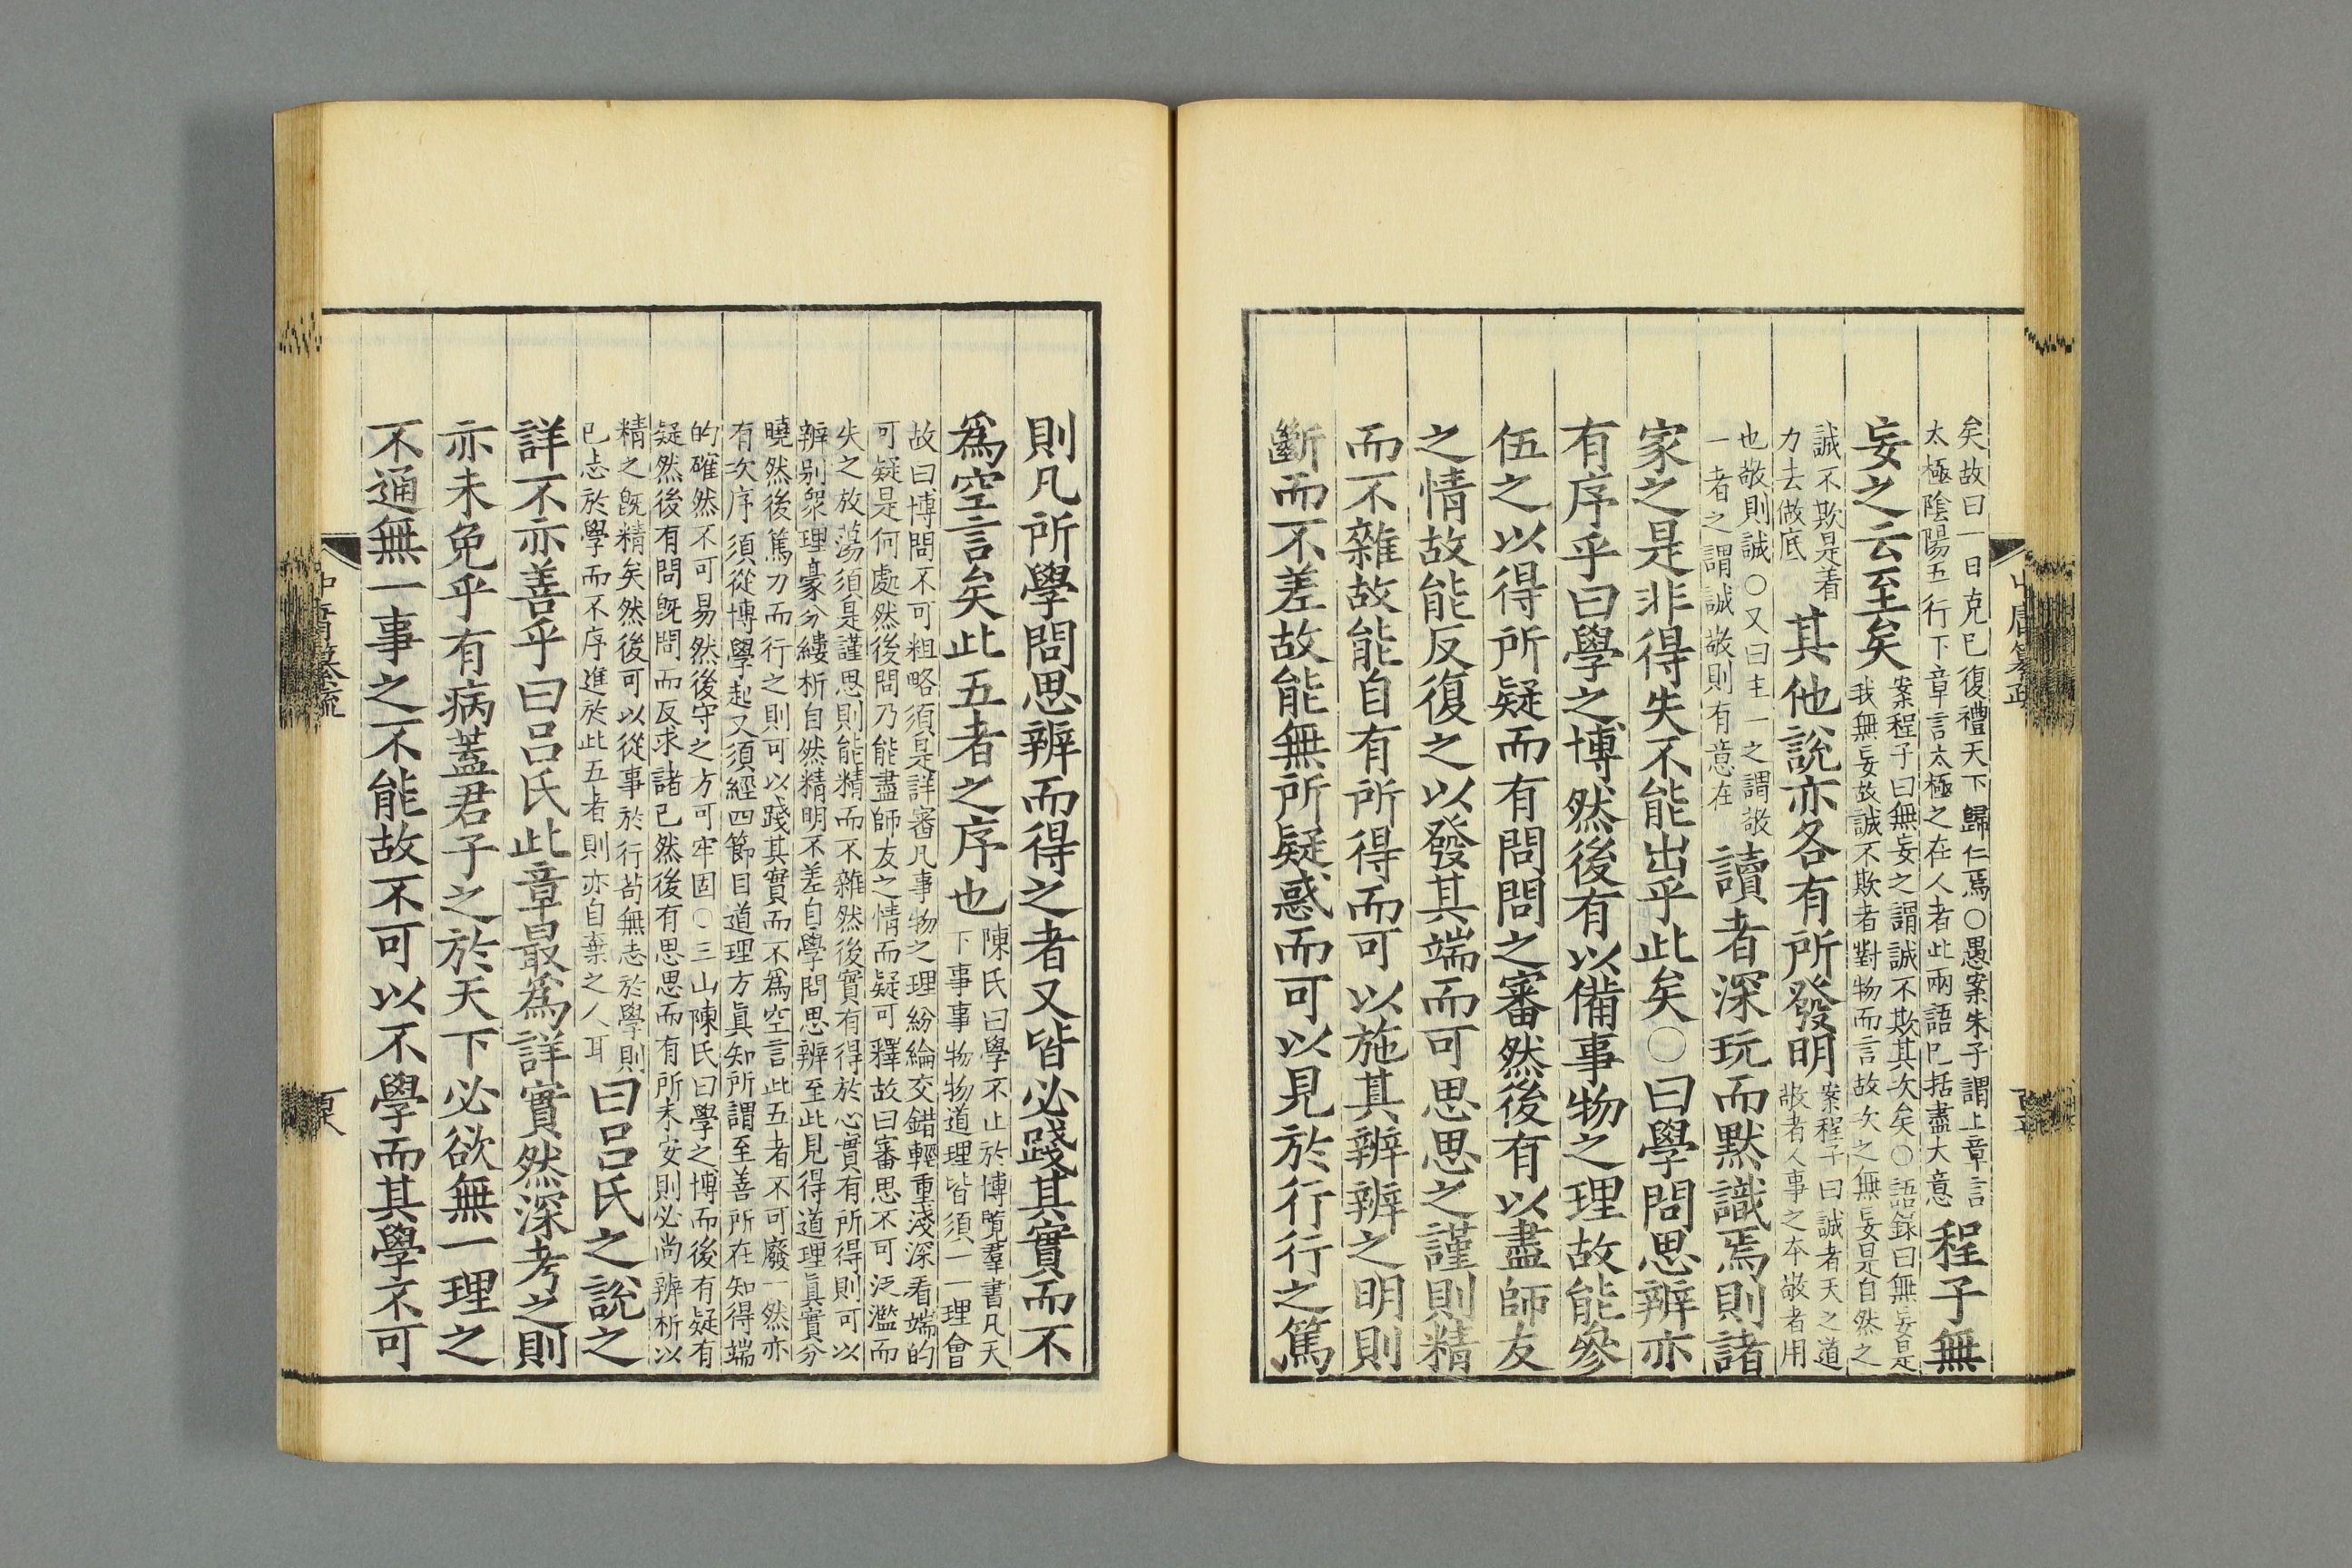 矣故曰一日克巳復禮天下歸仁焉○愚案朱子謂上章言
太極陰陽五行下章言太極之在人者此兩語巳括盡大意
程子無
妄之云至矣
案程子曰無妄之謂誠不欺其次矣○語錄曰無妄是
我無妄故誠不欺者對物而言故次之無妄是自然之
誠不欺是着
力去做底
其他說亦各有所發明
案程子曰誠者天之道
敬者人事之本敬者用
也敬則誠○又曰主一之謂敬
一者之謂誠敬則有意在
讀者深玩而默識焉則諸
家之是非得失不能出乎此矣○曰學問思辨亦
有序乎曰學之博然後有以備事物之理故能參
伍之以得所疑而有問問之審然後有以盡師友
之情故能反復之以發其端而可思思之謹則精
而不雜故能自有所得而可以施其辨辨之明則
斷而不差故能無所疑惑而可以見於行行之篤
則凡所學問思辨而得之者又皆必踐其實而不
爲空言矣此五者之序也
陳氏曰學不止於博覽羣書凡天
下事事物物道理皆須一一理會
故曰博問不可粗略須是詳審凡事物之理紛綸交錯輕重淺深看端的
可疑是何處然後問乃能盡師友之情而疑可釋故曰審思不可泛濫而
失之放蕩須是謹思則能精而不雜然後實有得於心實有所得則可以
辨别衆理豪分縷析自然精明不差自學問思辨至此見得道理眞實分
曉然後篤力而行之則可以踐其實而不爲空言此五者不可廢一然亦
有次序須從博學起又須經四節目道理方眞知所謂至善所在知得端
的確然不可易然後守之方可牢固○三山陳氏曰學之博而後有疑有
疑然後有問旣問而反求諸已然後有思思而有所未安則必尚辨析以
精之旣精矣然後可以從事於行苟無志於學則
巳志於學而不序進於此五者則亦自棄之人耳
曰呂氏之說之
詳不亦善乎曰呂氏此章最爲詳實然深考之則
亦未免乎有病蓋君子之於天下必欲無一理之
不通無一事之不能故不可以不學而其學不可